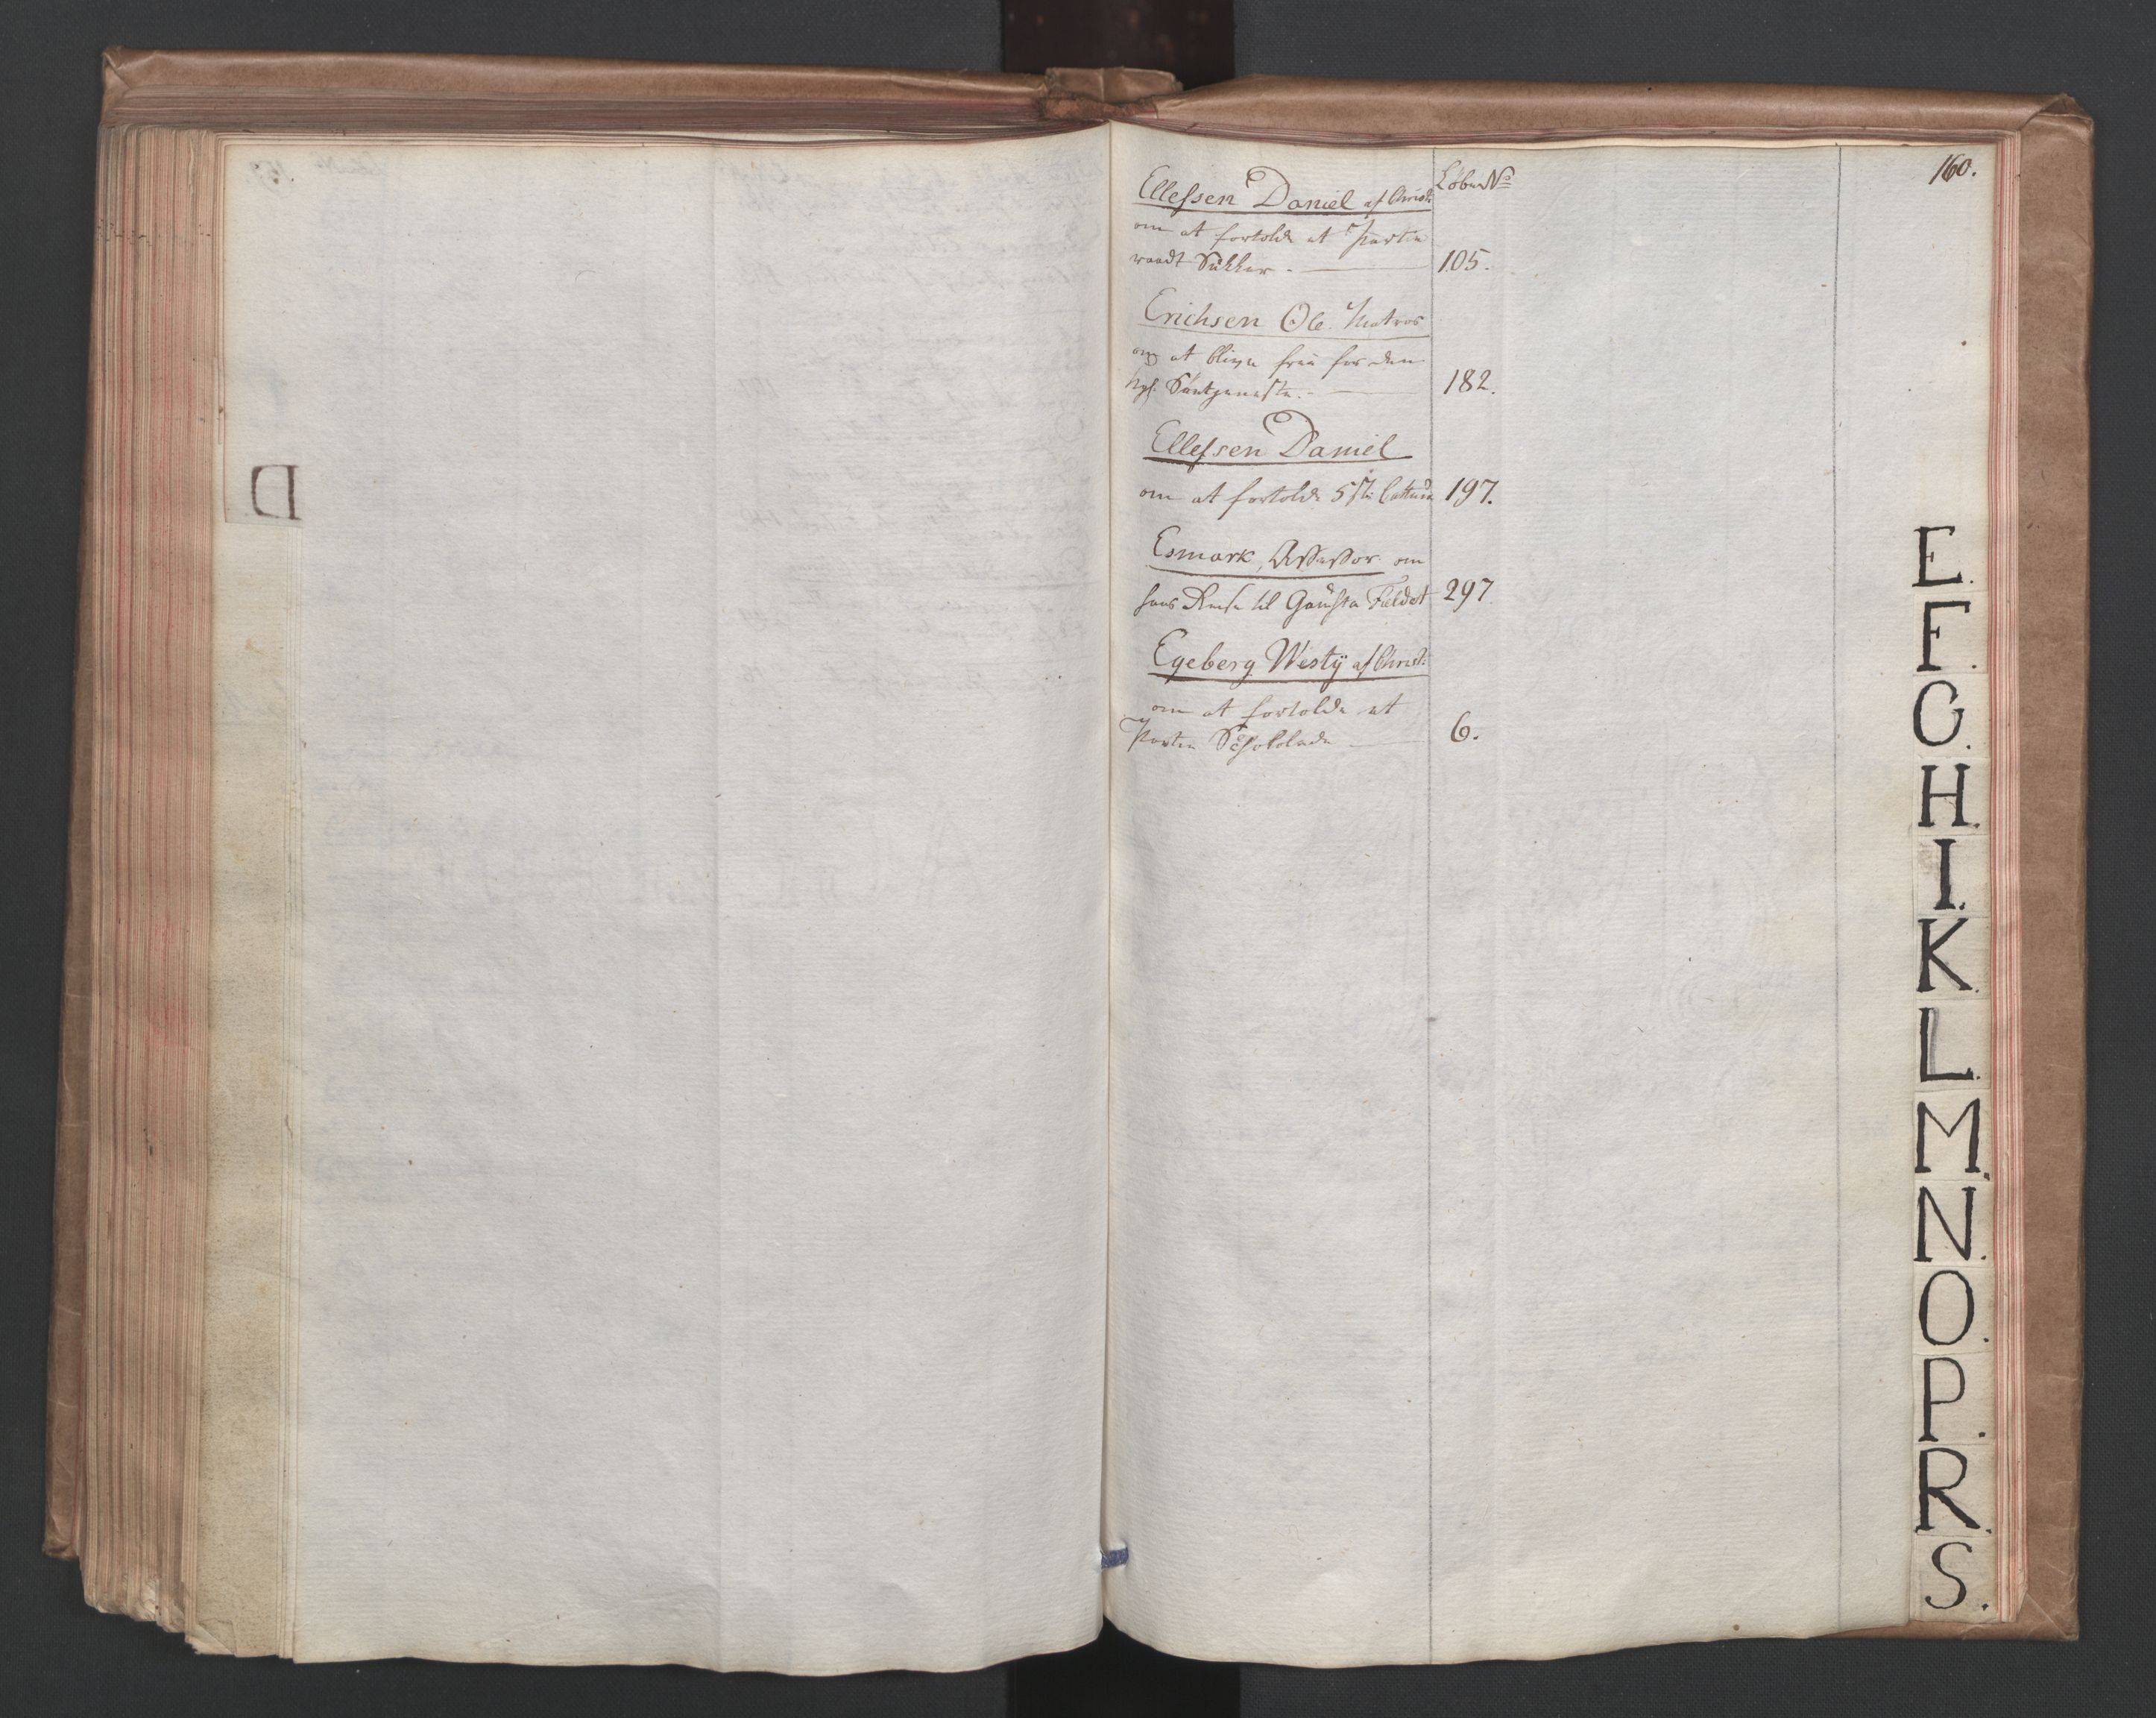 160.
Löbe No
Ellefsen Daniel af Christ:
om at fortolde et Partie
raadt Sukker. 105.
Erichsen Ole Matros
om at blive frie for den
kgl. Söetjeneste. 182.
Ellefsen Daniel
om at fortolde 5 St: Cattun 197.
Esmark, Assessor om
hans Reise til Gausta Fieldet 297
Egeberg Westÿ af Christ:
om at fortolde et
Partie Schokolade 6.
D
E.
F.
G.
H.
I.
K.
L.
M.
N.
O.
P.
R.
S.